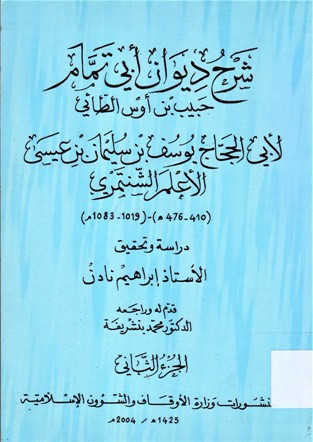 شرح ديوان أبي تمام
حبيب بن أوس الطائي
لأبي الحجاج يوسف بن سليمان بن عيسى
الأعلم الشنتمري
(410-476 هـ)-(1019-1083م)
دراسة وتحقيق
الأستاذ إبراهيم نادن
قدم له وراجعه
الدكتور محمد بنشريفة
الجزء الثاني
منشورات وزارة الأوقاف والشؤون الإسلامية
1425هـ/2004م